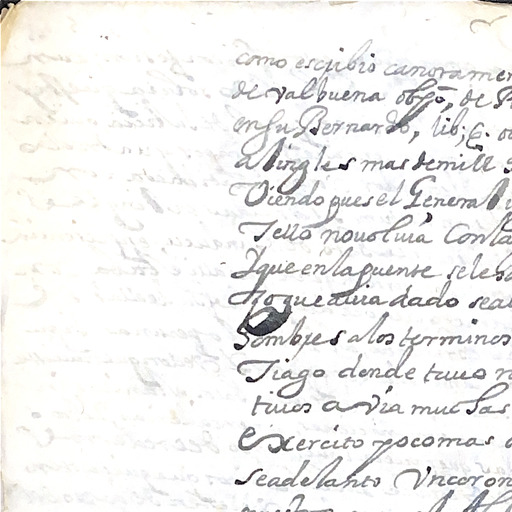 como escribio canoramen
de valbuena obpo, de P
en su Bernardo, lib; 6. o
a lingles mas de mill
Viendo pues el General
Tello no volvia Con la
Y que en la puente se le
que avia dado sea
hombres a los terminos
Tiago donde tuvo n
tivos avia muchas
Exercito poco mas
se adelanto Un coron